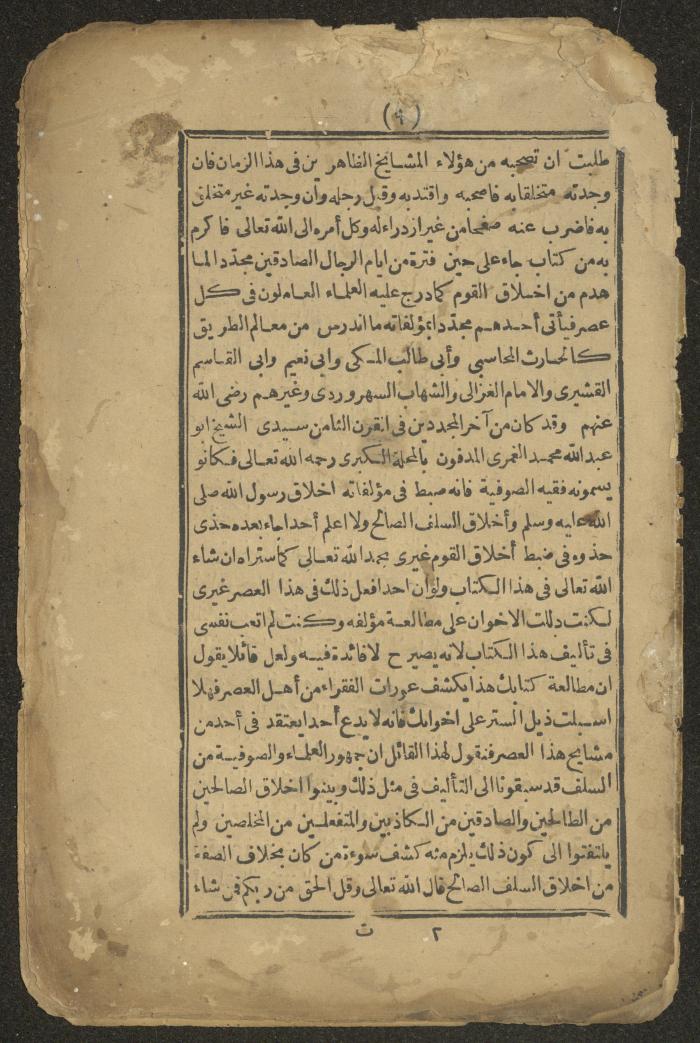 (٩)
طلبت ان تصحبه من هؤلاء المشايخ الظاهرين فى هذا الزمان فان
وجدته متخلقا به فاصحبه واقتد به وقبل رجله وان وجدته غير متخلق
به فاضرب عنه صفحا من غير ازدراء له وكل أمره الى الله تعالى فاكرم
به من كتاب جاء على حين فترة من ايام الرجال الصادقين مجدد الما
هدم من اخلاق القوم كما درج عليه العلماء العاملون فى كل
عصر فيأتى أحدهم مجددا بمؤلفاته ما اندرس من معالم الطريق
كالحارث المحاسبى وأبى طالب المكى وابى نعيم وابى القاسم
القشيرى والامام الغزالى والشهاب السهروردى وغيرهم رضى الله
عنهم وقد كان من آخر المجددين فى القرن الثامن سيدى الشيخ ابو
عبدالله محمد الغمرى المدفون بالمحلة الكبرى رحمه الله تعالى فكانو
يسمونه فقيه الصوفية فانه ضبط فى مؤلفاته اخلاق رسول الله صلى
الله عليه وسلم وأخلاق السلف الصالح ولا اعلم أحدا جاء بعده حذى
حذوه فى ضبط أخلاق القوم غيرى بحمد الله تعالى كما ستراه ان شاء
الله تعالى فى هذا الكتاب ولو ان احدا فعل ذلك فى هذا العصر غيرى
لكنت دللت الاخوان على مطالعة مؤلفه وكنت لم اتعب نفسى
فى تأليف هذا الكتاب لانه يصير ح لا فائدة فيه ولعل قائلا يقول
ان مطالعة كتابك هذا يكشف عورات الفقراء من أهل العصر فهلا
اسبلت ذيل الستر على اخوانك فانه لا يدع أحدا يعتقد فى أحد من
مشايخ هذا العصر فنقول لهذا القائل ان جمهور العلماء والصوفية من
السلف قد سبقونا الى التأليف فى مثل ذلك وبينوا اخلاق الصالحين
من الطالحين والصادقين من الكاذبين والمتفعلين من المخلصين ولم
يلتفتوا الى كون ذلك يلزم منه كشف سوءة من كان بخلاف الصفة
من اخلاق السلف الصالح قال الله تعالى وقل الحق من ربكم فمن شاء
٢ ت